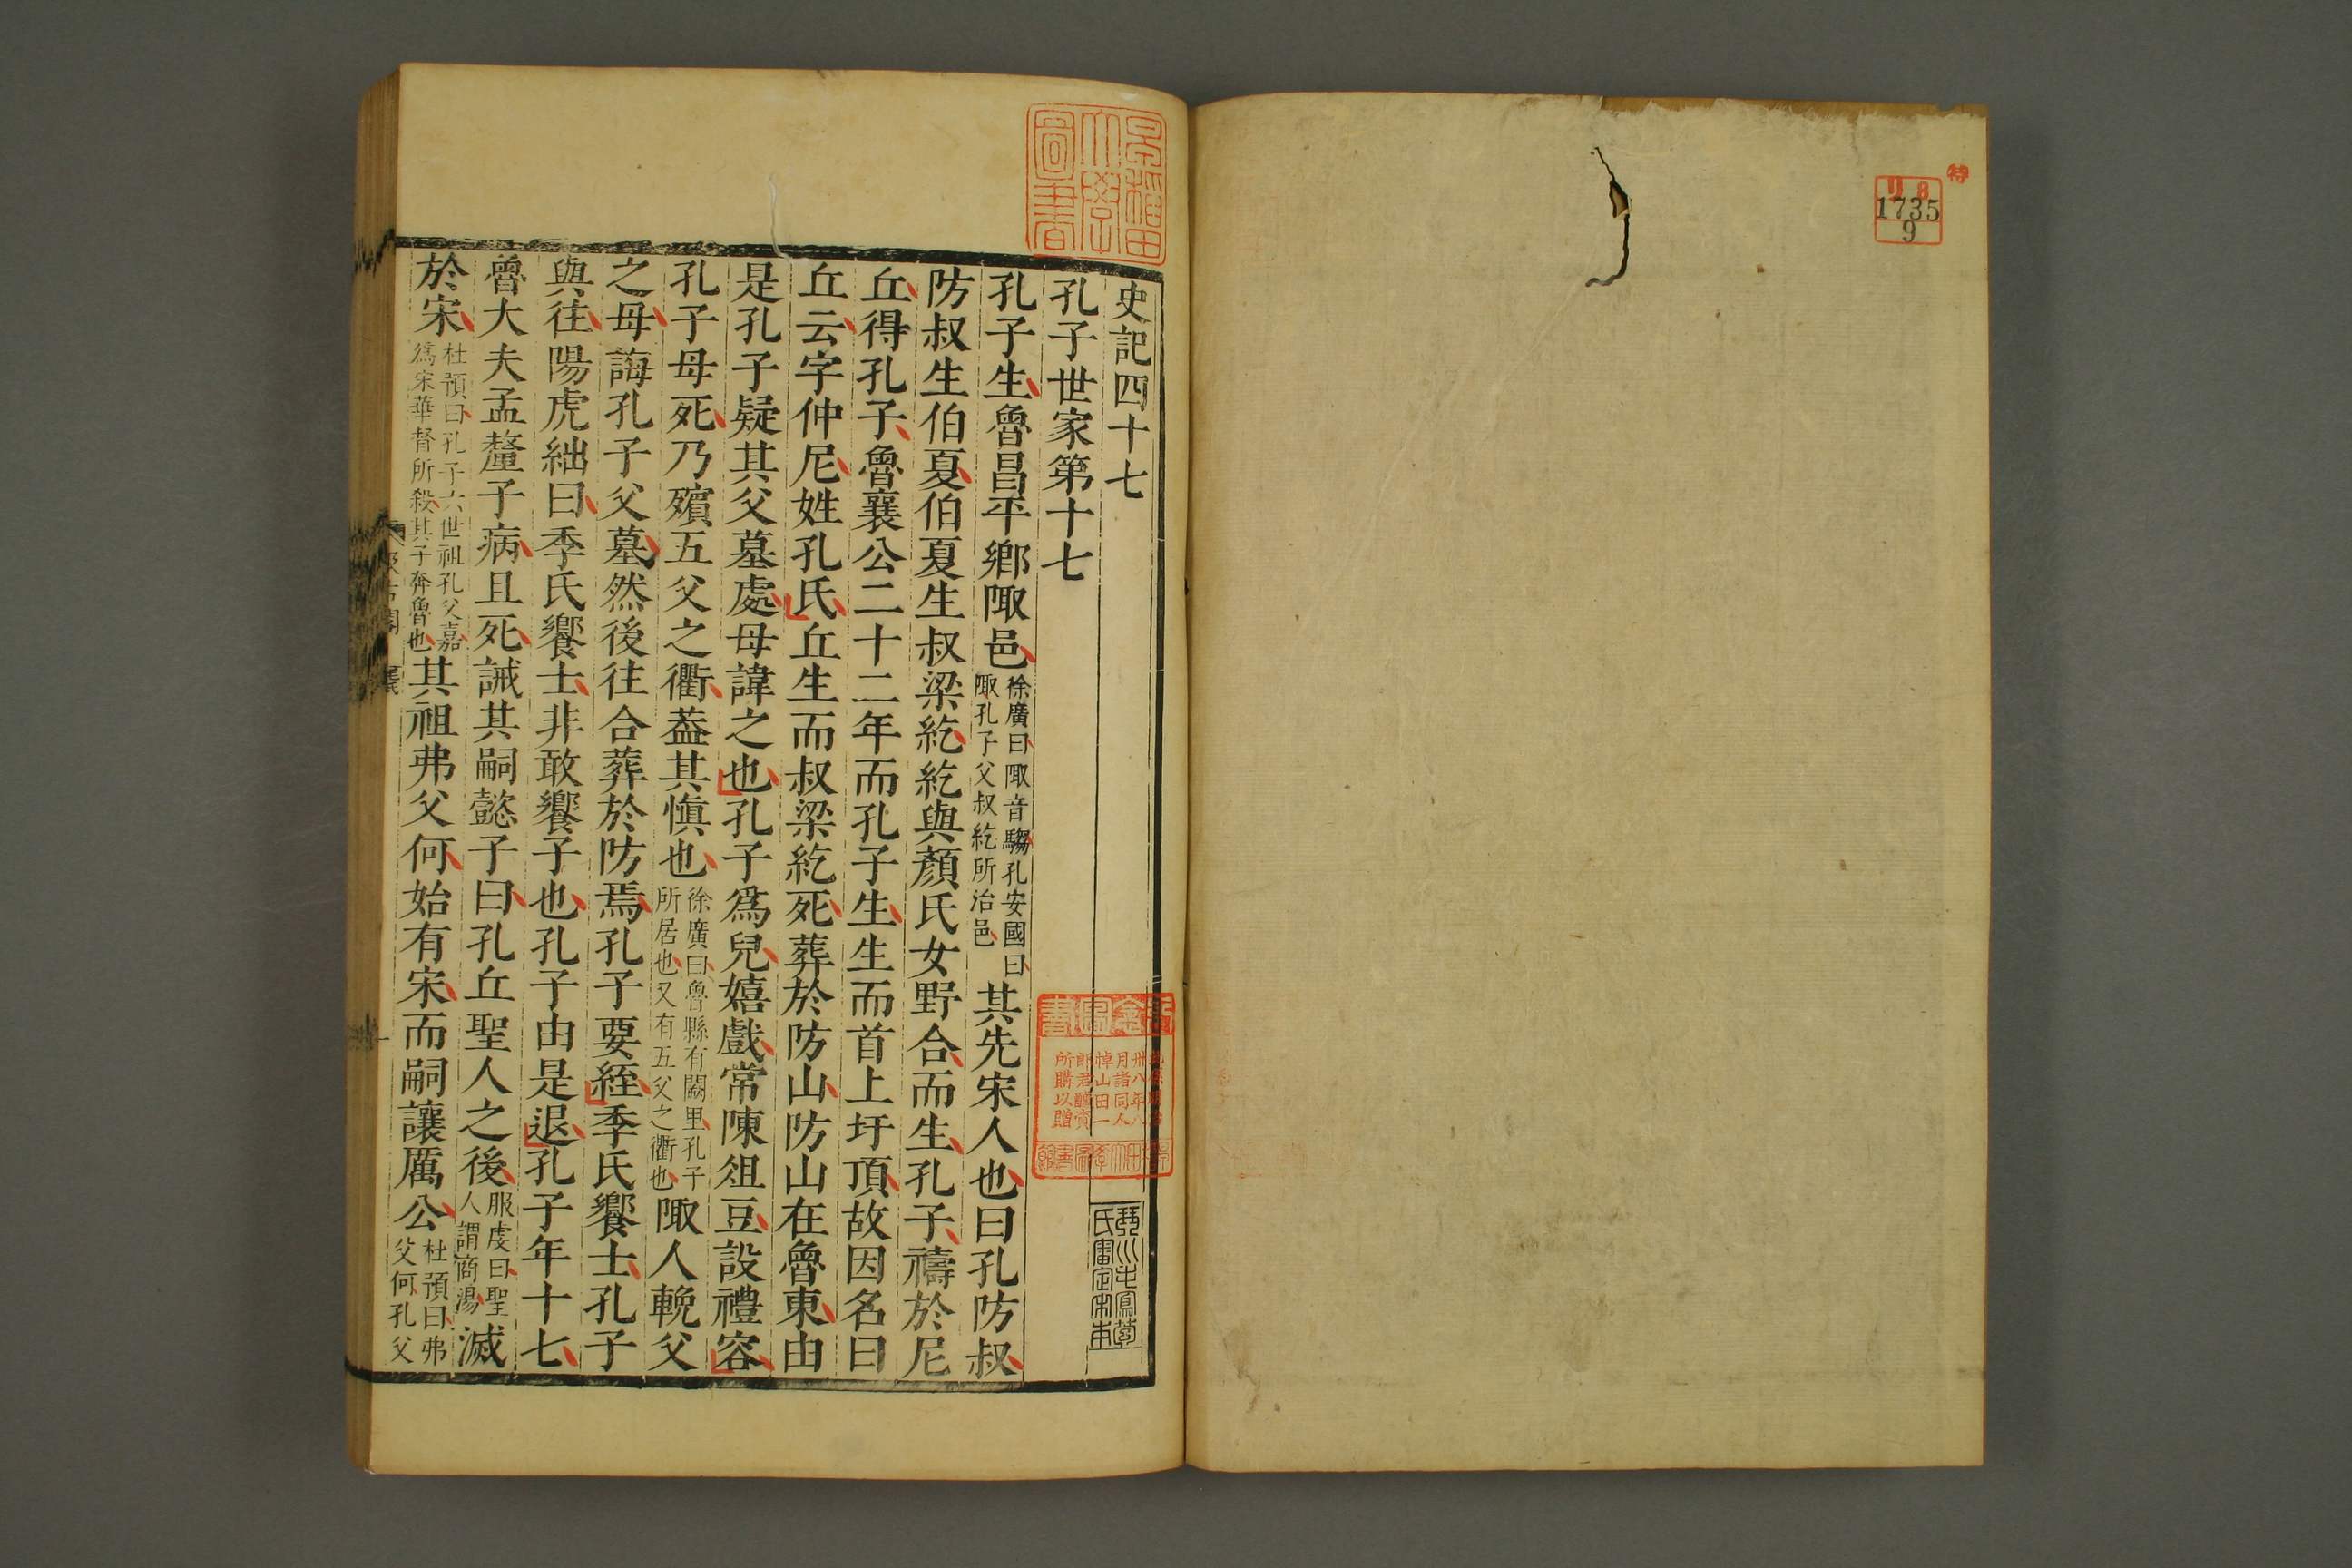 特
リ8
1735
9
早稲田
大學
圖書
史記四十七
孔子世家第十七
孔子生魯昌平鄉陬邑徐廣曰陬音騶孔安國曰陬孔子父叔紇所治邑其先宋人也曰孔防叔
防叔生伯夏伯夏生叔梁紇紇與顏氏女野合而生孔子禱於尼
丘得孔子魯襄公二十二年而孔子生生而首上圩頂故因名曰
丘云字仲尼姓孔氏丘生而叔梁紇死葬於防山防山在魯東由
是孔子疑其父墓處母諱之也孔子爲兒嬉戲常陳俎豆設禮容
孔子母死乃殯五父之衢葢其慎也徐廣曰魯縣有闕里孔子所居也又有五父之衢也陬人輓父
之母誨孔子父墓然後往合葬於防焉孔子要絰季氏饗士孔子
與往陽虎絀曰季氏饗士非敢饗子也孔子由是退孔子年十七
魯大夫孟釐子病且死誡其嗣懿子曰孔丘聖人之後服虔曰聖人謂商湯滅
於宋杜預曰孔子六世祖孔父嘉爲宋華督所殺其子奔魯也其祖弗父何始有宋而嗣讓厲公杜預曰弗父何孔父
卅八年八
月諸同人
悼山田一
郎君醵資
所購以贈